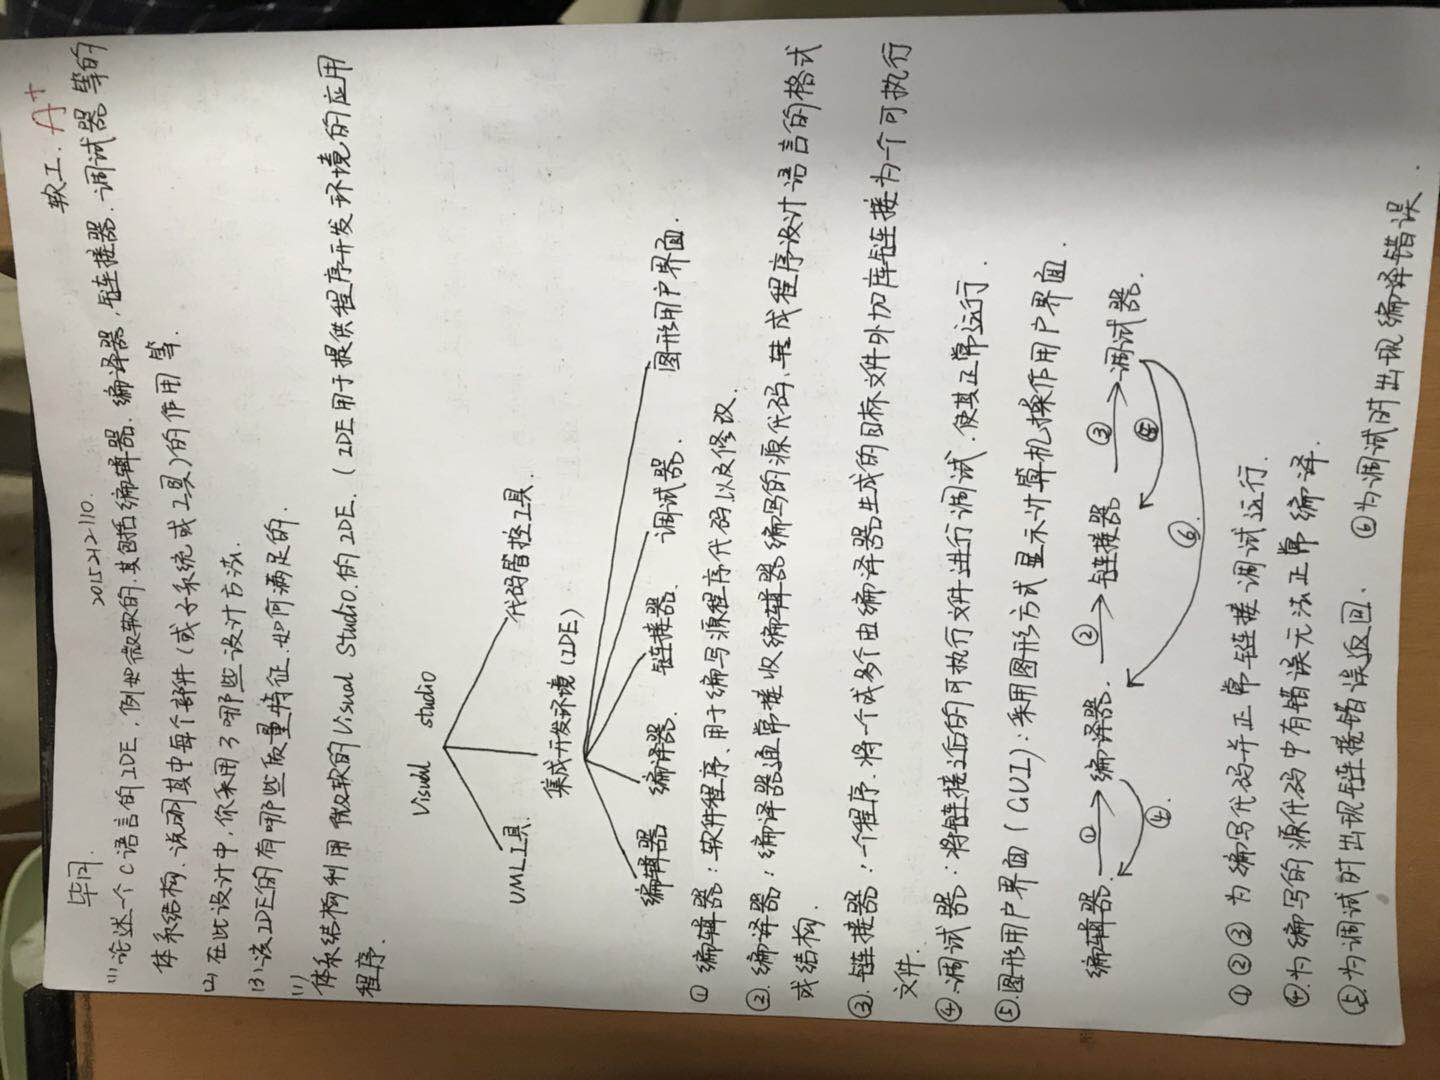 软工. A+
毕冈. 2015212110.
(1) 论述一个C语言的IDE, 例如微软的, 其包括编辑器、编译器, 链接器、调试器等的
体系结构. 说明其中每个部件(或子系统或工具)的作用等.
(2) 在此设计中, 你采用了哪些设计方法.
(3) 该IDE的有哪些质量特征. 如何满足的.
(1)
体系结构利用微软的Visual Studio.的IDE. (IDE用于提供程序开发环境的应用
程序.
Visual studio
UML工具. 集成开发环境(IDE) 代码管控工具.
编辑器 编译器. 链接器. 调试器. 图形用户界面.
① 编辑器: 软件程序、用于编写源程序代码以及修改.
②. 编译器: 编译器通常接收编辑器编写的源代码、转成程序设计语言的格式
或结构.
③. 链接器: 一个程序. 将一个或多个由编译器生成的目标文件外加库链接为一个可执行
文件.
④. 调试器: 将链接过后的可执行文件进行调试. 使其正常运行.
⑤.图形用户界面(GUI): 采用图形方式显示计算机操作用户界面.
编辑器. ① 编译器. ② 链接器 ③ 调试器.
④. ⑤ ⑥.
①②③ 为编写代码并正常链接调试运行.
④.为编写的源代码中有错误无法正常编译.
⑤为调试时出现链接错误返回. ⑥为调试时出现编译错误.